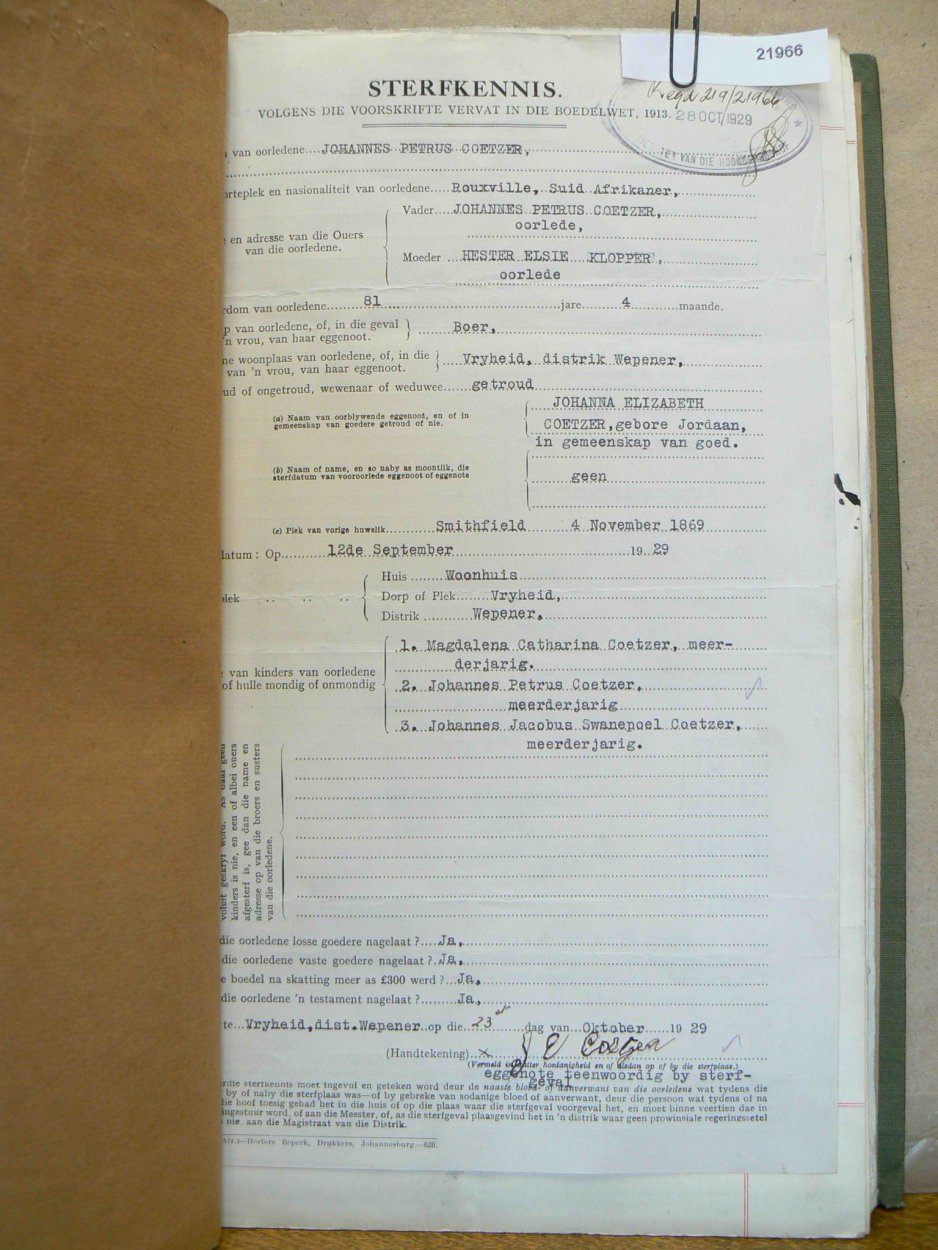 21966
Regd 219/21966
STERFKENNIS.
VOLGENS DIE VOORSKRIFTE VERVAT IN DIE BOEDELWET, 1913.
28 OCT 1929
van oorledene....JOHANNES PETRUS COETZER,
orteplek en nasionaliteit van oorledene....Rouxville, Suid Afrikaner,
Vader.....JOHANNES PETRUS COETZER,
oorlede,
en adresse van die Ouers
van die oorledene.
Moeder ...HESTER ELSIE KLOPPER,
oorlede
rdom van oorledene........81........jare........4........maande.
p van oorledene, of, in die geval
'n vrou, van haar eggenoot.
Boer,
ne woonplaas van oorledene, of, in die
van 'n vrou, van haar eggenoot.
Vryheid, distrik Wepener,
ud of ongetroud, wewenaar of weduwee......getroud
(a) Naam van oorblywende eggenoot, en of in
gemeenskap van goedere getroud of nie.
JOHANNA ELIZABETH
COETZER,gebore Jordaan,
in gemeenskap van goed.
(b) Naam of name, en so naby as moontlik, die
sterfdatum van vooroorlede eggenoot of eggenote
geen
(c) Plek van vorige huwelik..........Smithfield 4 November 1869
datum : Op..........12de September..........19 29
Huis .......Woonhuis
lek .. .. .. Dorp of Plek.......Vryheid,
Distrik .......Wepener,
van kinders van oorledene
of hulle mondig of onmondig
1. Magdalena Catharina Coetzer, meer-
derjarig.
2. Johannes Petrus Coetzer,
meerderjarig
3. Johannes Jacobus Swanepoel Coetzer,
meerderjarig.
kinders is nie, en een of albei ouers
afgesterf is, gee dan die name en
adresse op van die broers en susters
van die oorledene.
die oorledene losse goedere nagelaat ?....Ja,
die oorledene vaste goedere nagelaat ?..Ja,
e boedel na skatting meer as £300 werd ?...Ja,
die oorledene 'n testament nagelaat ?........Ja,
te...Vryheid,dist.Wepener..op die..23........dag van...Oktober......19 29
(Handtekening)..x E Coetzer
(Vermeld in watter hoedanigheid en of aldan op of by die sterfplaas.)
eggenote teenwoordig by sterf-
geval
rdie sterfkennis moet ingevul en geteken word deur de naaste bloed- of aanverwant van die oorledens wat tydens die
by of naby die sterfplaas was—of by gebreke van sodanige bloed of aanverwant, deur die persoon wat tydens of na
lie hoof toesig gehad het in die huis of op die plaas waar die sterfgeval voorgeval het, en moet binne veertien dae in
ingestuur word, of aan die Meester, of, as die sterfgeval plaasgevind het in 'n distrik waar geen prowinsiale regeringssetel
nie, aan die Magistraat van die Distrik.
Afr.)—Hortors Beperk, Drukkers, Johannesburg.—62B.